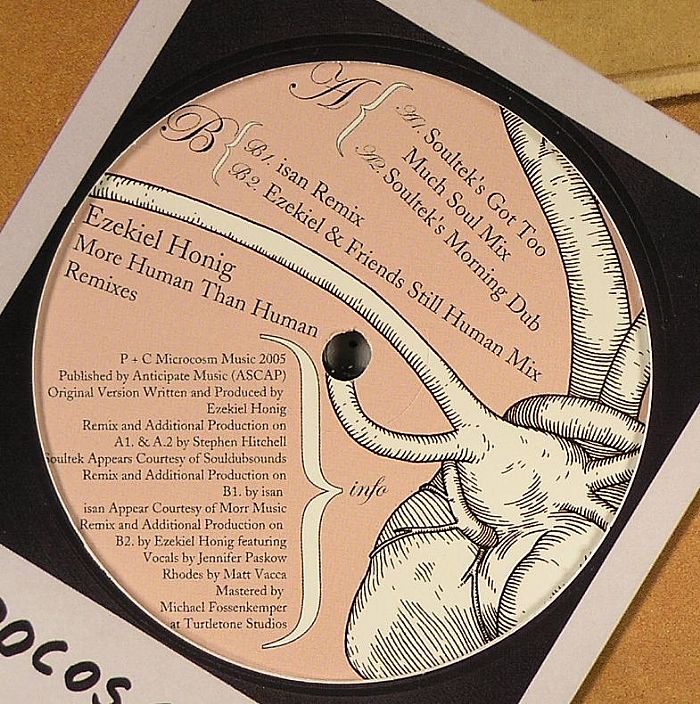 A
A1. Soultek's Got Too
Much Soul Mix
A2. Soultek's Morning Dub
B
B1. isan Remix
B2. Ezekiel & Friends Still Human Mix
Ezekiel Honig
More Human Than Human
Remixes
P + C Microcosm Music 2005
Published by Anticipate Music (ASCAP)
Original Version Written and Produced by
Ezekiel Honig
Remix and Additional Production on
A1. & A.2 by Stephen Hitchell
Soultek Appears Courtesy of Souldubsounds
Remix and Additional Production on
B1. by isan
isan Appear Courtesy of Morr Music
Remix and Additional Production on
B2. by Ezekiel Honig featuring
Vocals by Jennifer Paskow
Rhodes by Matt Vacca
Mastered by
Michael Fossenkemper
at Turtletone Studios
info